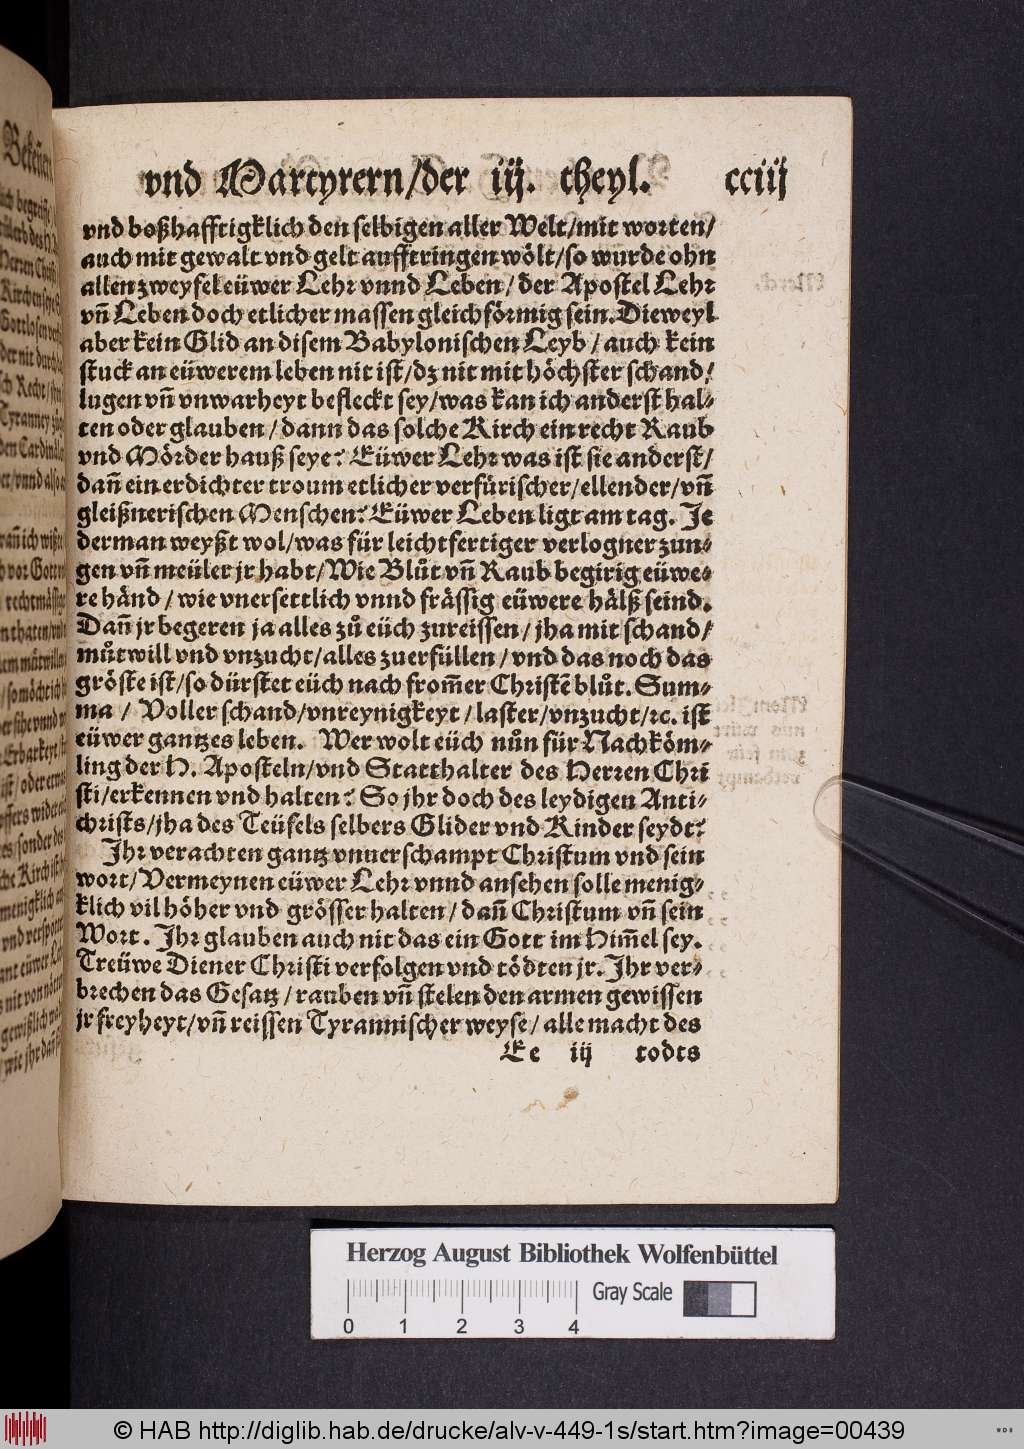 vnd Martyrern/der iij. theyl. cciij
vnd boßhafftigklich den selbigen aller Welt/mit worten/
auch mit gewalt vnd gelt aufftringen wölt/so wurde ohn
allen zweyfel eüwer Lehr vnnd Leben/der Apostel Lehr
vñ Leben doch etlicher massen gleichförmig sein. Dieweyl
aber kein Glid an disem Babylonischen Leyb/auch kein
stuck an eüwerem leben nit ist/dz nit mit höchster schand/
lugen vñ vnwarheyt befleckt sey/was kan ich anderst hal⸗
ten oder glauben/dann das solche Kirch ein recht Raub
vnd Mörder hauß seye? Eüwer Lehr was ist sie anderst/
dañ ein erdichter troum etlicher verfürischer/ellender/vñ
gleißnerischen Menschen? Eüwer Leben ligt am tag. Je
derman weyßt wol/was für leichtfertiger verlogner zun⸗
gen vñ meüler jr habt/Wie Blůt vñ Raub begirig eüwe⸗
re händ/wie vnersettlich vnnd frässig eüwere hälß seind.
Dañ jr begeren ja alles zů eüch zureissen/jha mit schand/
můtwill vnd vnzucht/alles zuerfüllen/vnd das noch das
gröste ist/so dürstet eüch nach from̃er Christẽ blůt. Sum⸗
ma/Voller schand/vnreynigkeyt/laster/vnzucht/ꝛc. ist
eüwer gantzes leben. Wer wolt eüch nůn für Nachköm⸗
ling der H. Aposteln/vnd Statthalter des Herren Chri
sti/erkennen vnd halten? So jhr doch des leydigen Anti⸗
christs/jha des Teüfels selbers Glider vnd Kinder seydt?
Jhr verachten gantz vnuerschampt Christum vnd sein
wort/Vermeynen eüwer Lehr vnnd ansehen solle menig⸗
klich vil höher vnd grösser halten/dañ Christum vñ sein
Wort. Jhr glauben auch nit das ein Gott im Him̃el sey.
Treüwe Diener Christi verfolgen vnd tödten jr. Jhr ver⸗
brechen das Gesatz/rauben vñ stelen den armen gewissen
jr freyheyt/vñ reissen Tyrannischer weyse/alle macht des
Ee iij todts
Herzog August Bibliothek Wolfenbüttel
Gray Scale
0 1 2 3 4
© HAB http://diglib.hab.de/drucke/alv-v-449-1s/start.htm?image=00439